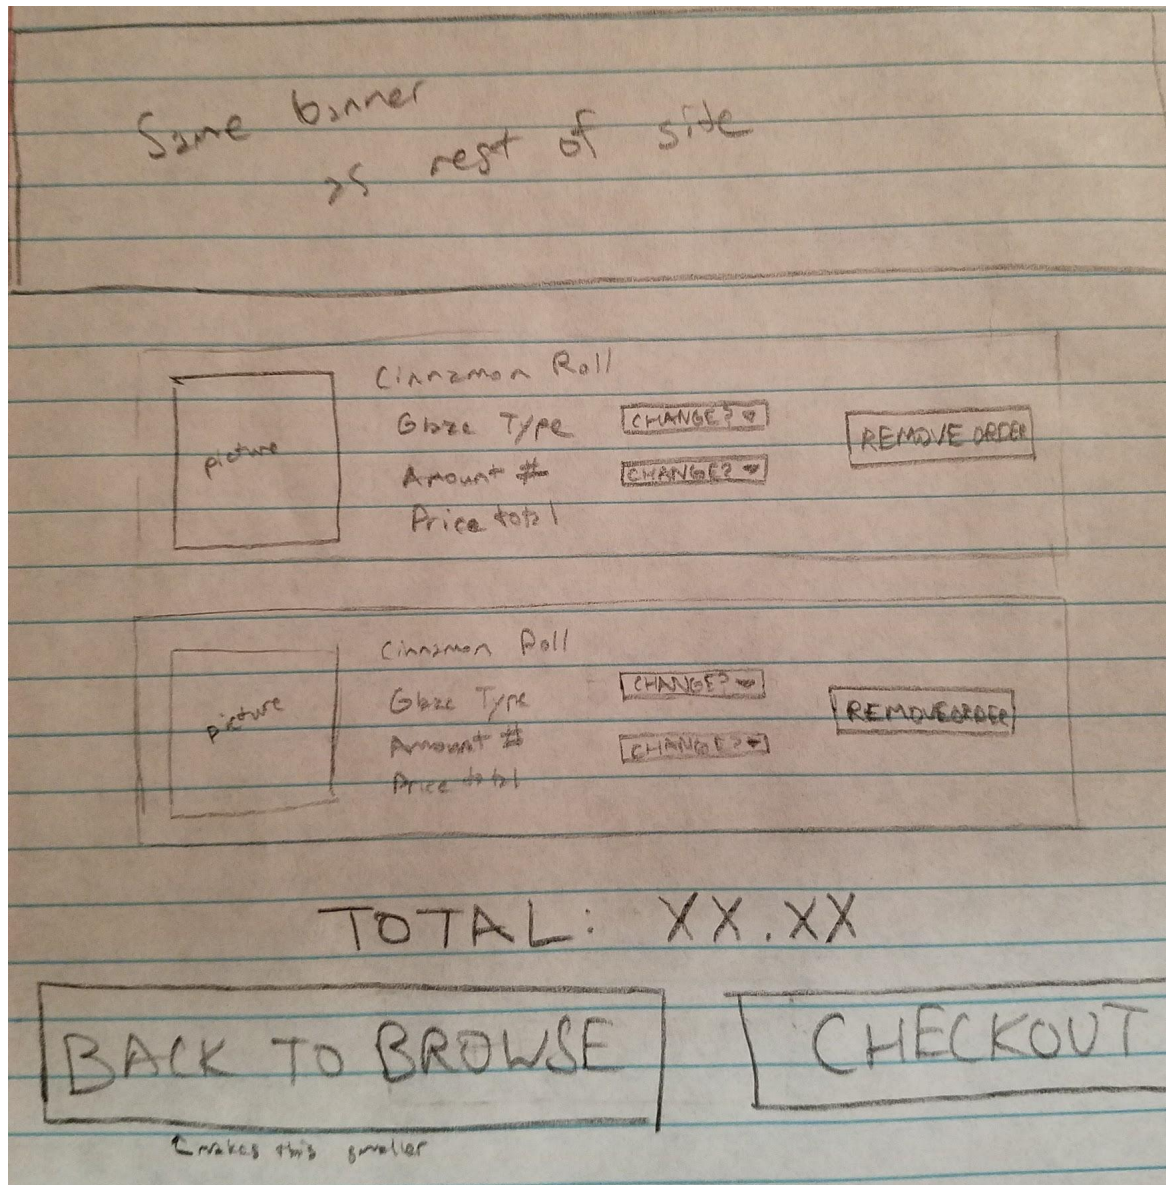 Same banner
as rest of side
picture
Cinnamon Roll
Glaze Type CHANGE?
Amount # CHANGE?
Price total
REMOVE ORDER
picture
Cinnamon Roll
Glaze Type CHANGE?
Amount # CHANGE?
Price total
REMOVE ORDER
TOTAL: XX.XX
BACK TO BROWSE
CHECKOUT
makes this smaller